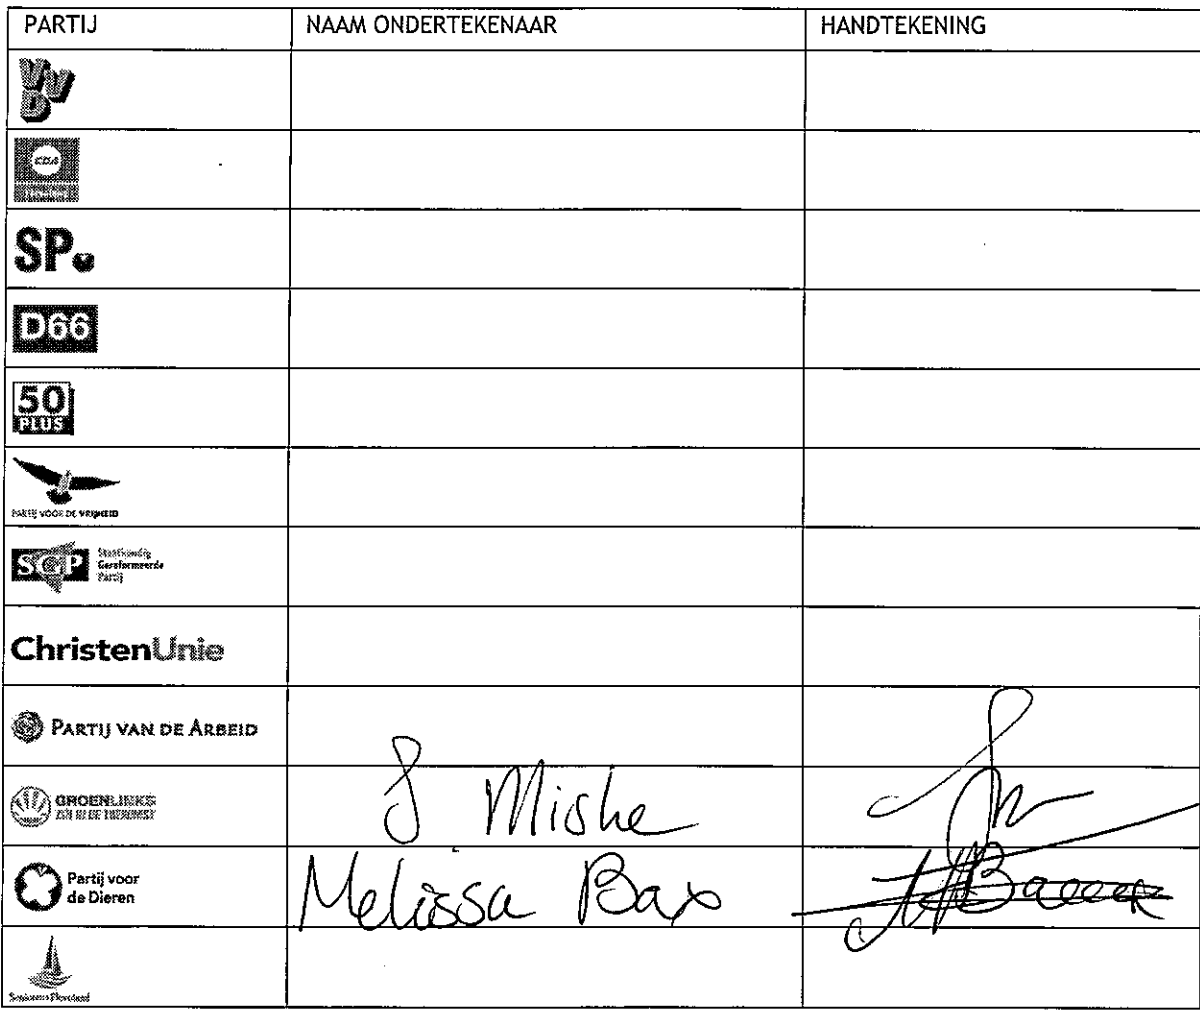 PARTIJ NAAM ONDERTEKENAAR HANDTEKENING
VVD
CDA
SP.
D66
50
PLUS
PARTIJ VOOR DE VRIJHEID
SGP Staatkundig
Gereformeerde
Partij
ChristenUnie
PARTIJ VAN DE ARBEID
GROENLINKS
S Miske
Partij voor
de Dieren
Melissa Bax